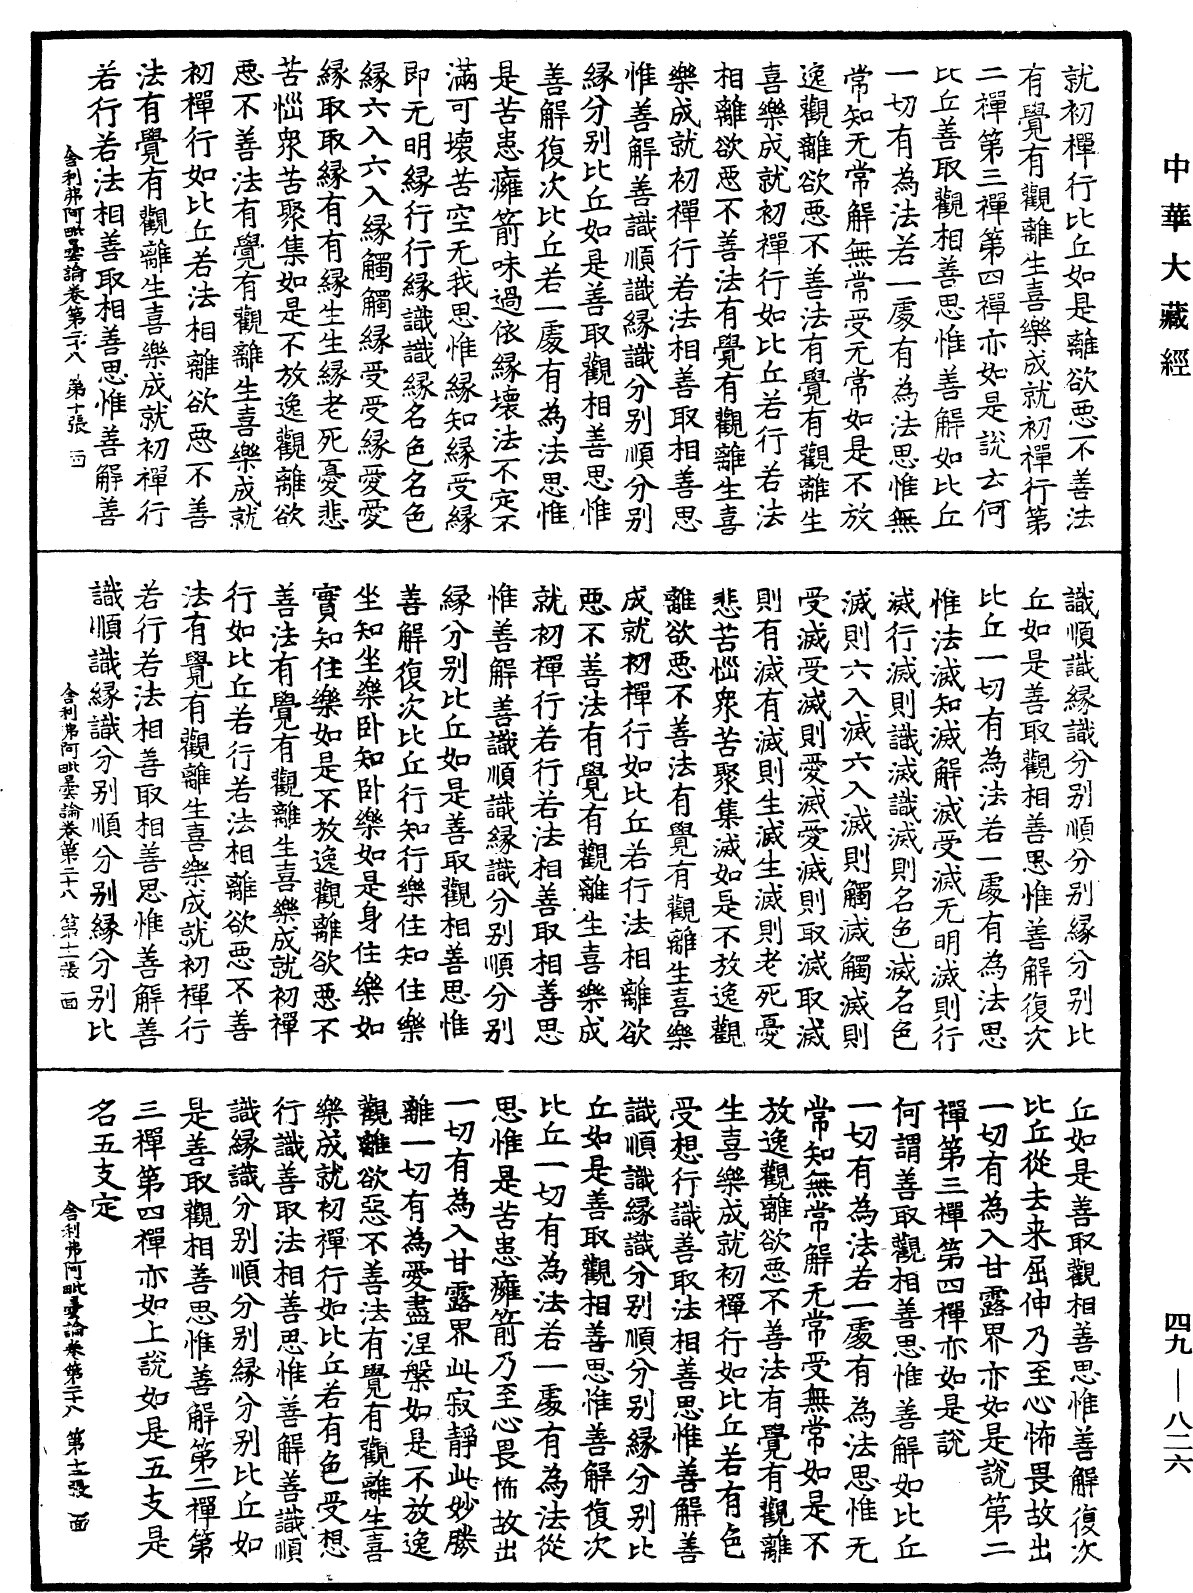 中華大藏經
就初禪行比丘如是離欲惡不善法
有覺有觀離生喜樂成就初禪行第
二禪第三禪第四禪亦如是說云何
比丘善取觀相善思惟善解如比丘
一切有為法若一處有為法思惟無
常知无常解無常受无常如是不放
逸觀離欲惡不善法有覺有觀離生
喜樂成就初禪行如比丘若行若法
相離欲惡不善法有覺有觀離生喜
樂成就初禪行若法相善取相善思
惟善解善識順識緣識分別順分別
緣分別比丘如是善取觀相善思惟
善解復次比丘若一處有為法思惟
是苦患癰箭味過依緣壞法不定不
滿可壞苦空无我思惟緣知緣受緣
即无明緣行行緣識識緣名色名色
緣六入六入緣觸觸緣受受緣愛愛
緣取取緣有有緣生生緣老死憂悲
苦惱衆苦聚集如是不放逸觀離欲
惡不善法有覺有觀離生喜樂成就
初禪行如比丘若法相離欲惡不善
法有覺有觀離生喜樂成就初禪行
若行若法相善取相善思惟善解善
舍利弗阿毗曇論卷第二十八 第十張 一面
識順識緣識分別順分別緣分別比
丘如是善取觀相善思惟善解復次
比丘一切有為法若一處有為法思
惟法滅知滅解滅受滅无明滅則行
滅行滅則識滅識滅則名色滅名色
滅則六入滅六入滅則觸滅觸滅則
受滅受滅則愛滅愛滅則取滅取滅
則有滅有滅則生滅生滅則老死憂
悲苦惱衆苦聚集滅如是不放逸觀
離欲惡不善法有覺有觀離生喜樂
成就初禪行如比丘若行法相離欲
惡不善法有覺有觀離生喜樂成
就初禪行若行若法相善取相善思
惟善解善識順識緣識分別順分別
緣分別比丘如是善取觀相善思惟
善解復次比丘行知行樂住知住樂
坐知坐樂卧知卧樂如是身住樂如
實知住樂如是不放逸觀離欲惡不
善法有覺有觀離生喜樂成就初禪
行如比丘若行若法相離欲惡不善
法有覺有觀離生喜樂成就初禪行
若行若法相善取相善思惟善解善
識順識緣識分別順分別緣分別比
舍利弗阿毗曇論卷第二十八 第十一張 一面
丘如是善取觀相善思惟善解復次
比丘從去来屈伸乃至心怖畏故出
一切有為入甘露界亦如是說第二
禪第三禪第四禪亦如是說
何謂善取觀相善思惟善解如比丘
一切有為法若一處有為法思惟无
常知無常解无常受無常如是不
放逸觀離欲惡不善法有覺有觀離
生喜樂成就初禪行如比丘若有色
受想行識善取法相善思惟善解善
識順識緣識分別順分別緣分別比
丘如是善取觀相善思惟善解復次
比丘一切有為法若一處有為法從
思惟是苦患癰箭乃至心畏怖故出
一切有為入甘露界此寂靜此妙勝
離一切有為愛盡涅槃如是不放逸
觀離欲惡不善法有覺有觀離生喜
樂成就初禪行如比丘若有色受想
行識善取法相善思惟善解善識順
識緣識分別順分別緣分別比丘如
是善取觀相善思惟善解第二禪第
三禪第四禪亦如上說如是五支是
名五支定
舍利弗阿毗曇論卷第二十八 第十二張 一面
四九—八二六